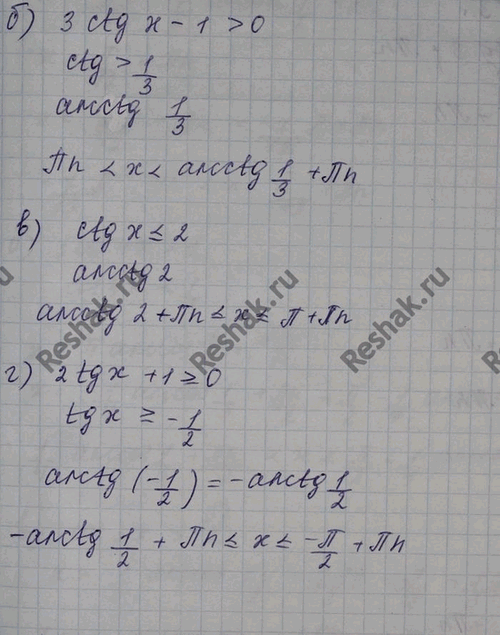 б) 3 ctg x - 1 > 0
ctg > 1/3
arcctg 1/3
Пn < x < arcctg 1/3 + Пn
в) ctg x ≤ 2
arcctg 2
arcctg 2 + Пn ≤ x ≤ П + Пn
г) 2 tg x + 1 ≥ 0
tg x ≥ -1/2
arctg (-1/2) = -arctg 1/2
-arctg 1/2 + Пn ≤ x ≤ -П/2 + Пn
Reshak.ru
Reshak.ru
Reshak.ru